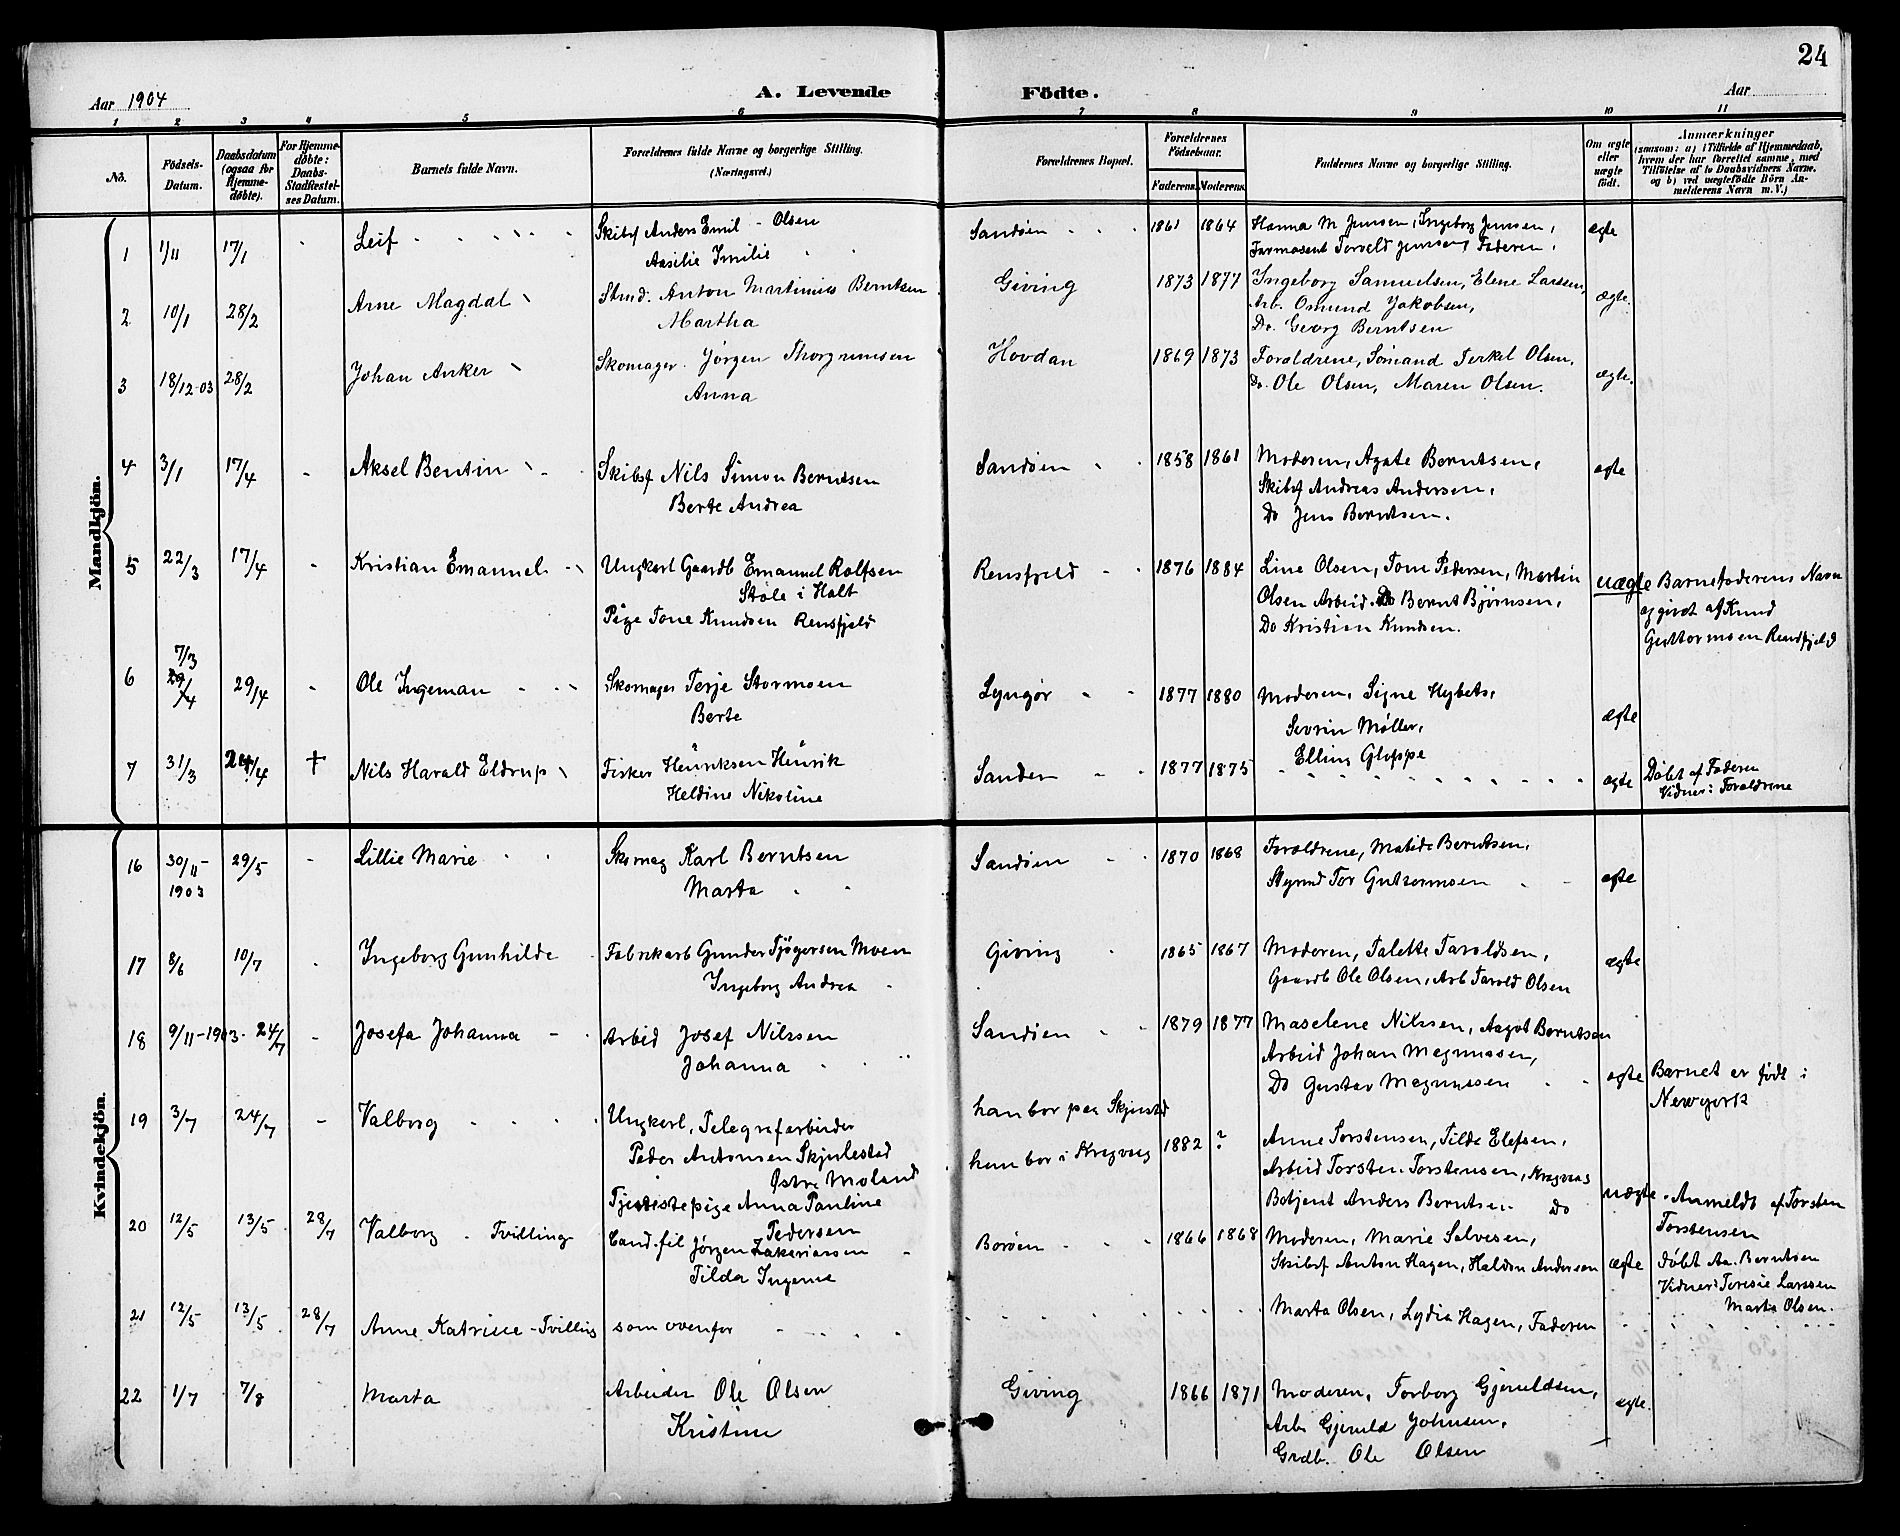 24
Aar 1904
A. Levende Födte.
Aar
1 2 3 4 5 6 7 8 9 10 11
No.
Födsels-Datum.
Daabsdatum (ogsaa for Hjemmedøbte).
For Hjemmedøbte: Daabs-Stadfæstelses Datum.
Barnets fulde Navn.
Forældrenes fulde Navne og borgerlige Stilling. (Næringsvei.)
Forældrenes Bopæl.
Forældrenes Födselsaar.
Faderens. Moderens.
Faddernes Navne og borgerlige Stilling.
Om ægte eller uægte født.
Anmærkninger
(saasom: a) i Tilfælde af Hjemmedaab, hvem der har forrettet samme, med Tilføielse af to Daabsvidners Navne, og b) ved uægtefødte Börn Anmelderens Navn m. V.)
Mandkjön.
1 1/11 17/1 Leif Skibsf Anders Emil Olsen Sandøen 1861 1864 Hanna M Jensen, Ingeborg Jenssen, ægte
Aasilie Emilie Farmasent Torvald Jenssen, Faderen.
2 10/1 28/2 Arne Magdal Strnd. Anton Martinius Berntsen Giving 1873 1877 Ingeborg Samuelsen, Elene Larssen, ægte.
Martha Arb. Osmund Jakobsen,
Do. Georg Berntsen
3 18/12-03 28/2 Johan Anker Skomager. Jørgen Thorgrimsen Hovdan 1869 1873 Forældrene, Sømand Terkel Olsen. ægte.
Anna Do. Ole Olsen, Maren Olsen.
4 3/1 17/4 - Aksel Bentin Skibsf Nils Simon Berntsen Sandøen 1858 1861 Moderen, Agate Berntsen, ægte
Berte Andrea Skibsf Andreas Andersen,
Do Jens Berntsen.
5 22/3 17/4 - Kristian Emanuel Ungkarl Gaardb Emanuel Rolfsen Rensfjeld 1876 1884 Line Olsen, Tone Pedersen, Martin uægte Barnefaderens Navn
Støle i Holt Olsen Arbeid. Do Bernt Bjørnsen, opgivet af Knud
Pige Tone Knudsen Rensfjeld Do Kristian Knudsen. Guttormsen Rensfjeld
7/3
6 29/4 29/4 - Ole Ingeman Skomager Terje Stormoen Lyngør 1877 1880 Moderen, Signe Nybets, ægte
Berte Sevrin Møller,
Elling Gloppe
7 31/3 24/4 † Nils Harald Eldrup Fisker Henriksen Henrik Sanden 1877 1875 ægte Døbt af Faderen
Heldine Nikoline Vidner: Forældrene
Kvindekjön.
16 30/11- 29/5 - Lillie Marie Skomag Karl Berntsen Sandøen 1870 1868 Forældrene, Matide Berntsen, ægte
1903 Marta Styrmd Tor Guttormsen
17 8/6 10/7 Ingeborg Gunhilde Fabrikarb Gunder Tjøgersen Moen Giving 1865 1867 Moderen, Talette Taroldsen, ægte
Ingeborg Andrea Gaardb Ole Olsen, Arb Tarold Olsen
18 9/11-1903. 24/7 - Josefa Johanna Arbeid Josef Nilssen Sandøen 1879 1877 Maselene Nilssen, Aagot Berntsen
Johanna Arbeid Johan Magnussen,
Do Gustav Magnussen ægte Barnet er født i
Newyork
19 3/7 24/7 - Valborg Ungkarl, Telegrafarbeider han bor paa Skjulestd
Peder Antonsen Skjulestad hun bor i Kragvaag 1882 ? Anne Torstensen, Tilda Elefsen,
Østre Moland Arbeid Torsten Torstensen, Kragvaag
Tjenestepige Anna Pauline Botjent Anders Berntsen Do uægte Anmeldt af Torsten
Pedersen Torstensen
20 12/5 13/5 28/7 Valborg - Tvilling Cand.fil Jørgen Zakariassen Borøen 1866 1868 Moderen, Marie Salvesen, ægte Døbt Aa. Berntsen
Tilda Ingema Skibsf Anton Hagen, Haldor Andersen Vidner: Teresie Larssen
Marta Olsen.
21 12/5 13/5 28/7 Anne Katrine - Tvilling som ovenfor Marta Olsen, Lydia Hagen, Faderen
22 1/7 7/8 Marta Arbeider Ole Olsen Giving 1866 1871 Moderen, Torborg Gjeruldsen, ægte.
Kristine Arb Gjeruld Johnsen,
Grdb. Ole Olsen